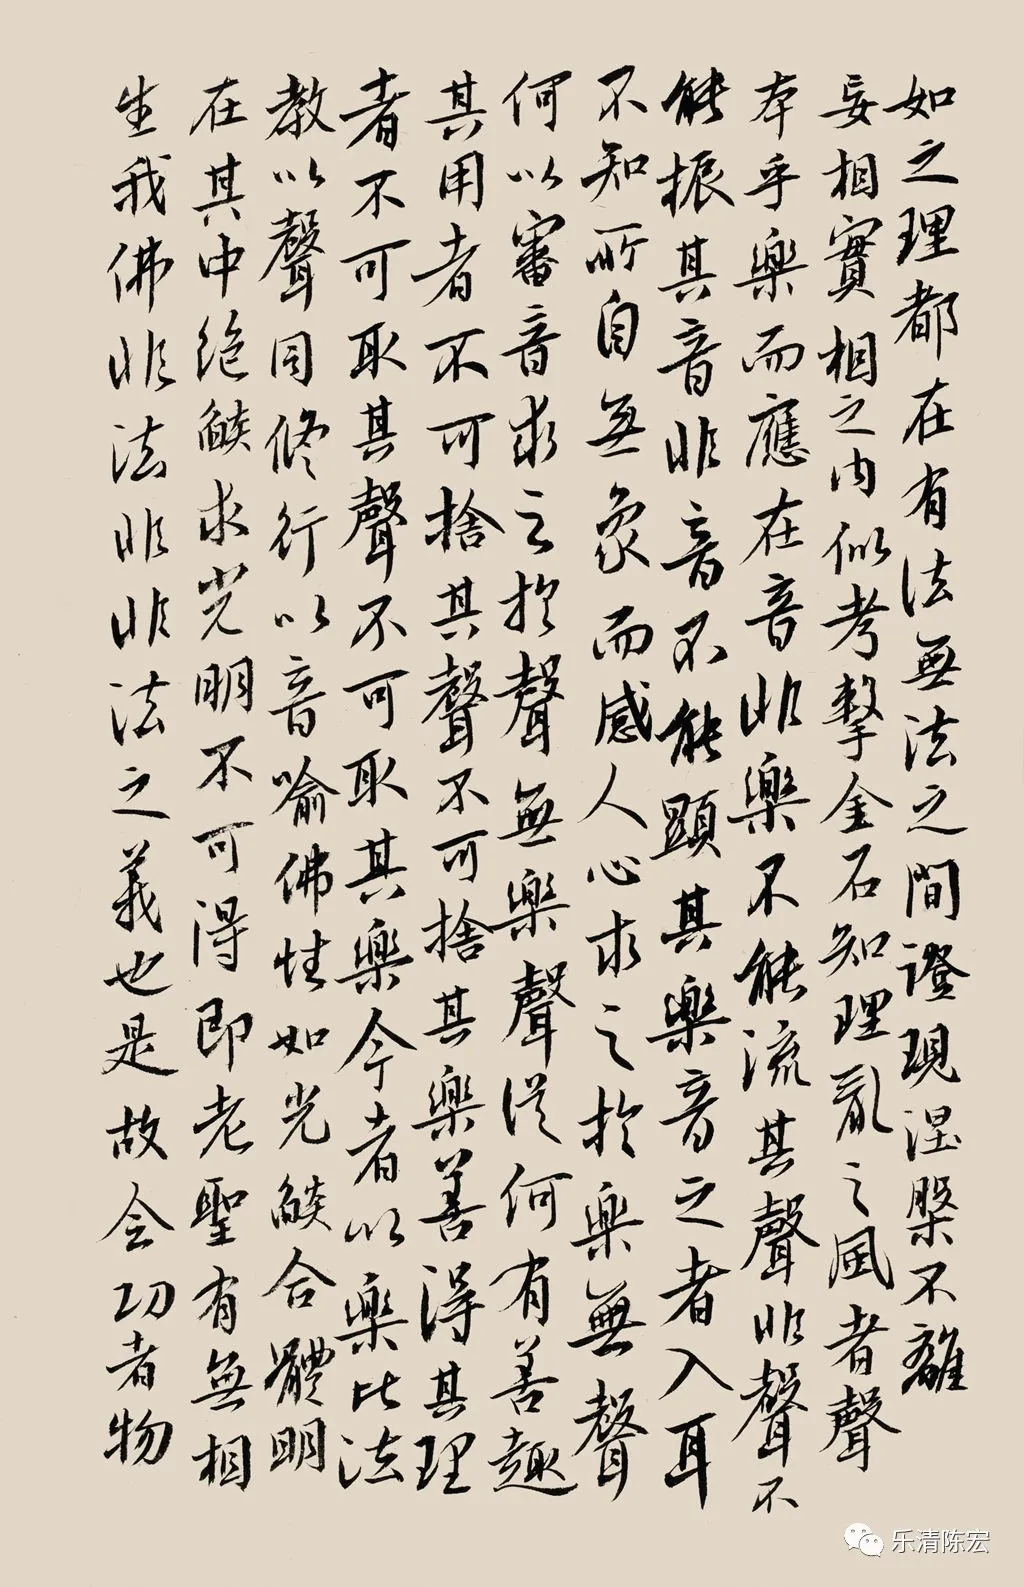 如之理都在有法無法之間證現涅槃不離
妄相實相之內似考擊金石知理亂之風者聲
本乎樂而應在音非樂不能流其聲非聲不
能振其音非音不能顯其樂音之者入耳
不知所自無象而感人心求之於樂無聲
何以審音求之於聲無樂聲從何有善趣
其用者不可捨其聲不可捨其樂善得其理
者不可取其聲不可取其樂今者以樂比法
教以聲同修行以音喻佛性如光燄合體明
在其中絕燄求光明不可得即老聖有無相
生我佛非法非非法之義也是故会功者物
乐清陈宏